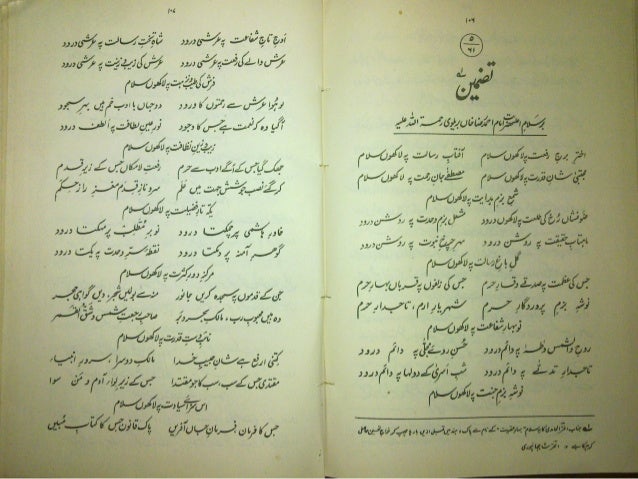 ۱۰۶
۵
۶۱
تضمین
بر سلام اعلیٰحضرت امام احمد رضا خاں بریلوی رحمۃ اللہ علیہ
اختر برج رفعت پہ لاکھوں سلام آفتاب رسالت پہ لاکھوں سلام
مجتبیٰ شان قدرت پہ لاکھوں سلام مصطفیٰ جان رحمت پہ لاکھوں سلام
شمع بزم ہدایت پہ لاکھوں سلام
پہ لاکھوں درود شعل بزم وحدت پہ روشن درود
ماہتاب حقیقت پہ روشن درود مہر چرخ نبوت پہ روشن درود
گل باغ رسالت پہ لاکھوں سلام
جس کی عظمت پہ صدقے وقار حرم جس کی زلفوں پہ قرباں بہار حرم
نوشہ بزم پروردگار حرم شہریار ارم، تاجدار حرم
نوبہار شفاعت پہ لاکھوں سلام
روح والشمس وطٰہٰ پہ دائم درود حسن روئے پہ دائم درود
تاجدار پہ دائم درود شب اسریٰ کے دولہا پہ دائم درود
نوشہ بزم جنت پہ لاکھوں سلام
۱۰۷
اوج تاج شفاعت پہ عرشی درود شاہ تخت رسالت پہ عرشی درود
عرش والے کی رفعت پہ عرشی درود عرش کی زیب و زینت پہ عرشی درود
فرش کی طیب و نزہت پہ لاکھوں سلام
لو ہوا عرش سے رحمتوں کا ورود دوجہاں با ادب خم ہیں بہر سجود
آگیا وہ کہ نعمت ہے جس کا وجود نور عین لطافت پہ الطف درود
زیب و زین نظافت پہ لاکھوں سلام
جھک گیا جس کے آگے ادب سے حرم رفعت لامکاں جس کے زیر قدم
کر گئے نصب جو شش جہت میں علم سرو ناز قدم مغز راز حکم
یکہ تاز فضیلت پہ لاکھوں سلام
خاور ہاشمی پہ چمکتا درود نوبر مطلب پہ مہکتا درود
گوہر آمنہ پر دمکتا درود نقطۂ سر وحدت پہ یکتا درود
مرکز دور کثرت پہ لاکھوں سلام
جن کے قدموں پہ سجدہ کریں جانور منہ سے بولیں شجر، دیں گواہی حجر
وہ ہیں محبوب رب، مالک بحر و بر صاحب رجعت شمس و شق القمر
نائب دست قدرت پہ لاکھوں سلام
کتنی ارفع ہے شان حبیب خدا مالک دوسرا، سرور انبیاء
مقتدی جس کے سب، سب کا جو مقتدا جس کے زیر لواء آدم و من سوا
اس سزائے سیادت پہ لاکھوں سلام
جس کا فرمان، فرمان جاں آفریں پاک قانون جس کا کتاب مبیں